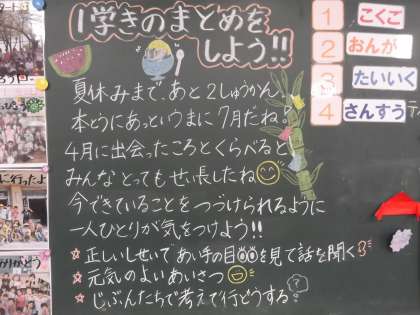 1学きのまとめを
しよう!!
夏休みまで、あと2しゅうかん。
本とうにあっというまに7月だね!
4月に出会ったころとくらべると
みんなとってもせい長したね
今できていることをつづけられるように
一人ひとりが気をつけよう!!
☆正しいしせいであい手の目を見て話を聞く
☆元気のよいあいさつ
☆じぶんたちで考えて行どうする
?
1 こくご
2 おんが
3 たいいく
4 さんすう